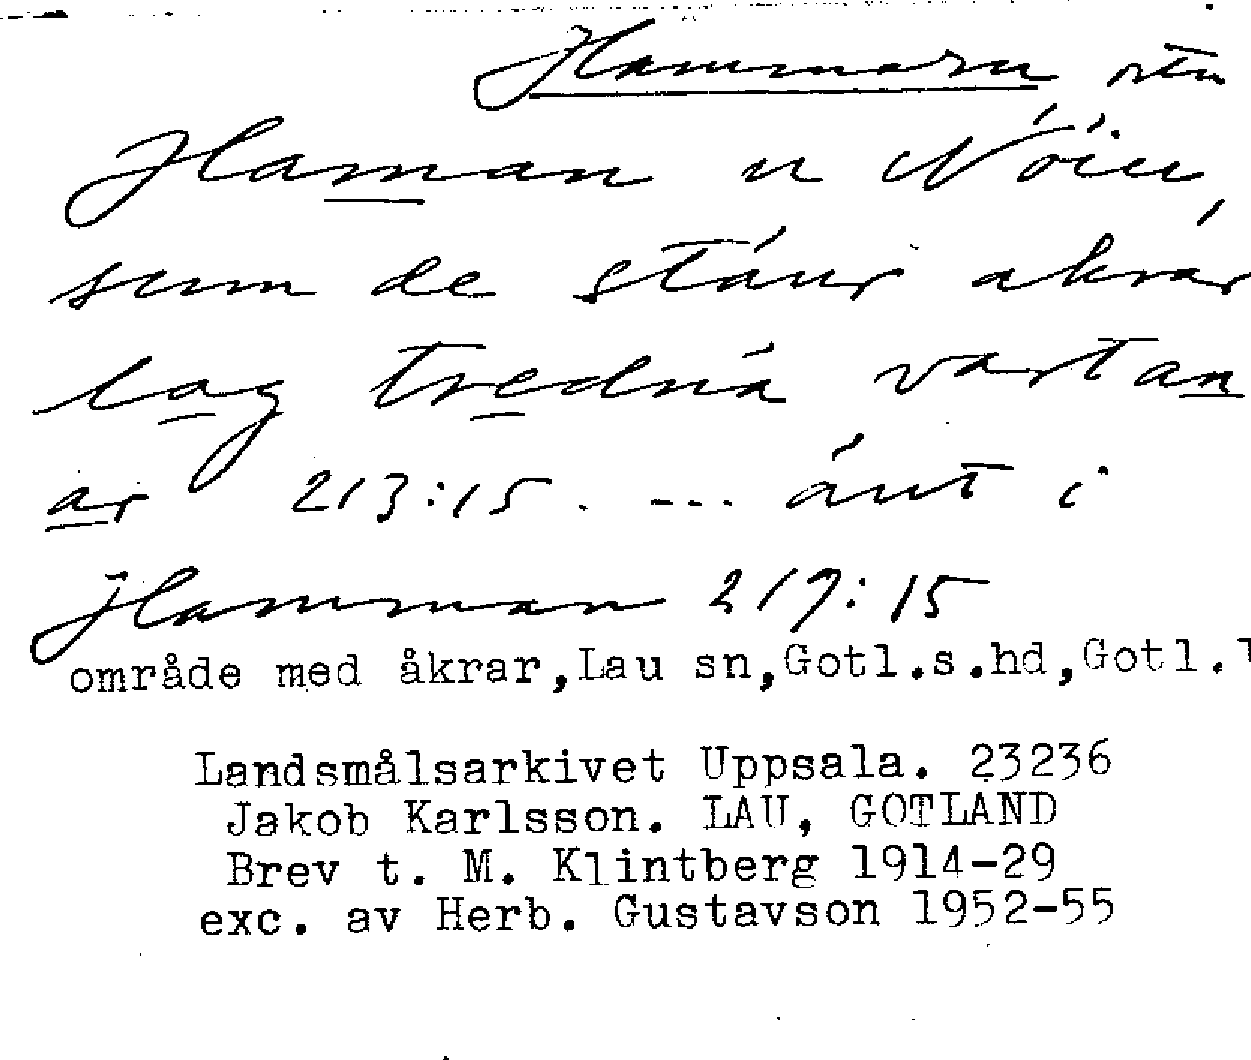 Hammarn
Haman u Nöiu,
sum de stáur akrár
lag tredná vartan
ar 213:15. --- áut i
Hamman 219:15
område med åkrar,Lau sn,Gotl.s.hd,Gotl.l
Landsmålsarkivet Uppsala. 23236
Jakob Karlsson. LAU, GOTLAND
Brev t. M. Klintberg 1914-29
exc. av Herb. Gustavson 1952-55